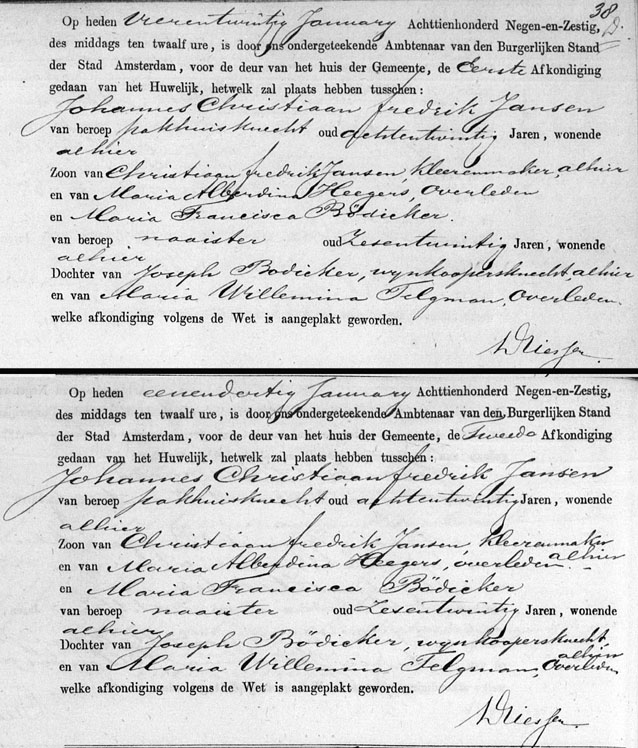 38
D.
Op heden Vierentwintig January Achttienhonderd Negen-en-Zestig,
des middags ten twaalf ure, is door ons ondergeteekende Ambtenaar van den Burgerlijken Stand
der Stad Amsterdam, voor de deur van het huis der Gemeente, de Eerste Afkondiging
gedaan van het Huwelijk, hetwelk zal plaats hebben tusschen:
Johannes Christiaan fredrik Jansen
van beroep pakhuisknecht oud achtentwintig Jaren, wonende
alhier
Zoon van Christiaan fredrik Jansen, kleerenmaker, alhier
en van Maria Alberdina Heegers, overleden
en Maria Francisca Bödicker.
van beroep naaister oud Zesentwintig Jaren, wonende
alhier
Dochter van Joseph Bödicker, wynkoopersknecht, alhier
en van Maria Willemina Felgman, overleden.
welke afkondiging volgens de Wet is aangeplakt geworden.
Op heden eenendertig January Achttienhonderd Negen-en-Zestig,
des middags ten twaalf ure, is door ons ondergeteekende Ambtenaar van den Burgerlijken Stand
der Stad Amsterdam, voor de deur van het huis der Gemeente, de Tweede Afkondiging
gedaan van het Huwelijk, hetwelk zal plaats hebben tusschen:
Johannes Christiaan fredrik Jansen
van beroep pakhuisknecht oud achtentwintig Jaren, wonende
alhier
Zoon van Christiaan fredrik Jansen, kleerenmaker
alhier
en van Maria Alberdina Heegers, overleden.
en Maria Francisca Bödicker
van beroep naaister oud Zesentwintig Jaren, wonende
alhier
Dochter van Joseph Bödicker, wynkoopersknecht
alhier
en van Maria Willemina Felgman, overleden
welke afkondiging volgens de Wet is aangeplakt geworden.